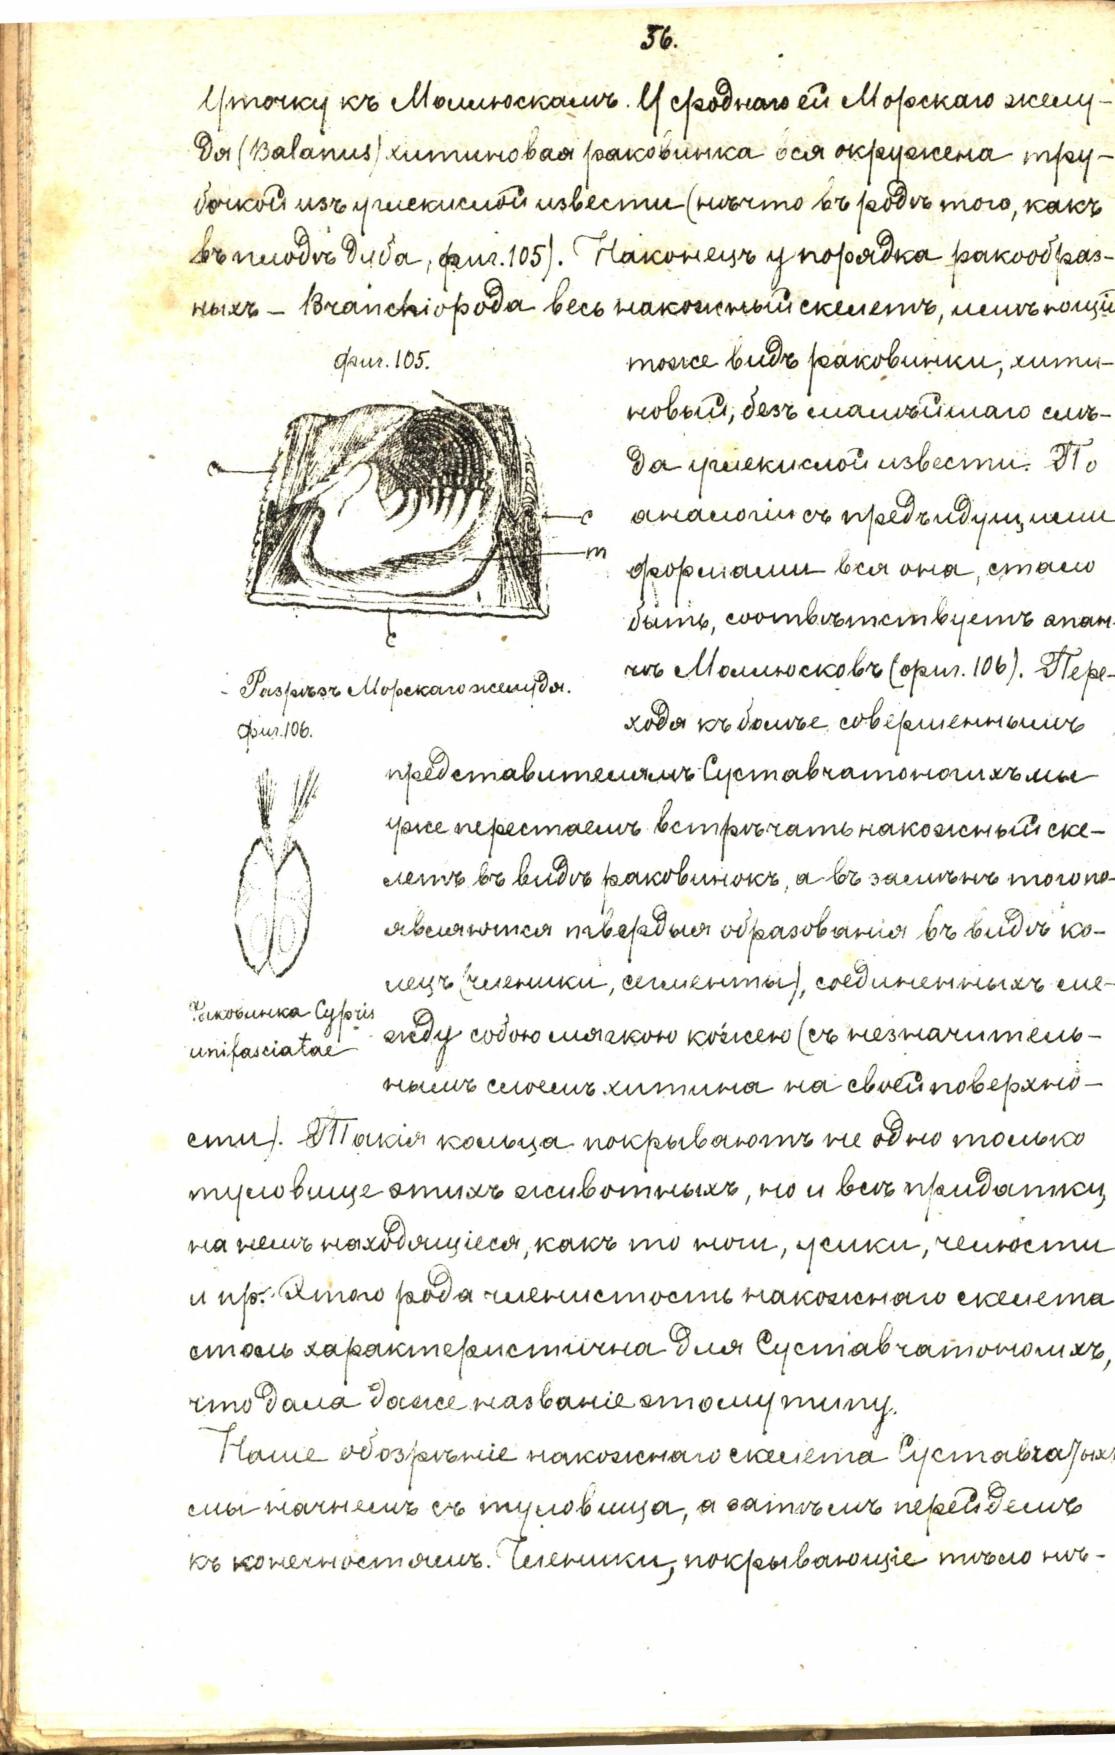 56.
Уточку къ Моллюскамъ. У сроднаго ей Морскаго желу-
дя (Balanus) хитиновая раковинка вся окружена тру-
бочкой изъ углекислой извести (нѣчто въ родѣ того, какъ
въ плодѣ дуба, фиг. 105). Наконецъ у порядка ракообраз-
ныхъ – Branchiopoda весь накожный скелетъ, имѣющій
фиг. 105.
тоже видъ раковинки, хити-
новый, безъ малѣйшаго слѣ-
да углекислой извести. По
аналогіи съ предъидущими
формами вся она, стало
быть, соотвѣтствуетъ эпан-
чѣ Моллюсковъ (фиг. 106). Пере-
ходя къ болѣе совершеннымъ
c
c
m
c
Разрѣзъ Морскаго желудя.
фиг. 106.
представителямъ Суставчатоногихъ мы
уже перестаемъ встрѣчать накожный ске-
летъ въ видѣ раковинокъ, а въ замѣнъ того по-
являются твердыя образования въ видѣ ко-
лецъ (членики, сегменты), соединенныхъ ме-
жду собою мягкою кожею (съ незначитель-
нымъ слоемъ хитина на своей поверхно-
Раковинка Cypris
unifasciatae
сти). Такія кольца покрываютъ не одно только
туловище этихъ животныхъ, но и всѣ придатки,
на немъ находящіеся, какъ то ноги, усики, челюсти
и пр. Этого рода членистость накожнаго скелета
столь характеристична для Суставчатоногихъ,
что дала даже названіе этому типу.
Наше обозрѣніе накожнаго скелета Суставчатыхъ
мы начнемъ съ туловища, а затѣмъ перейдемъ
къ конечностямъ. Членики, покрывающіе тѣло нѣ-